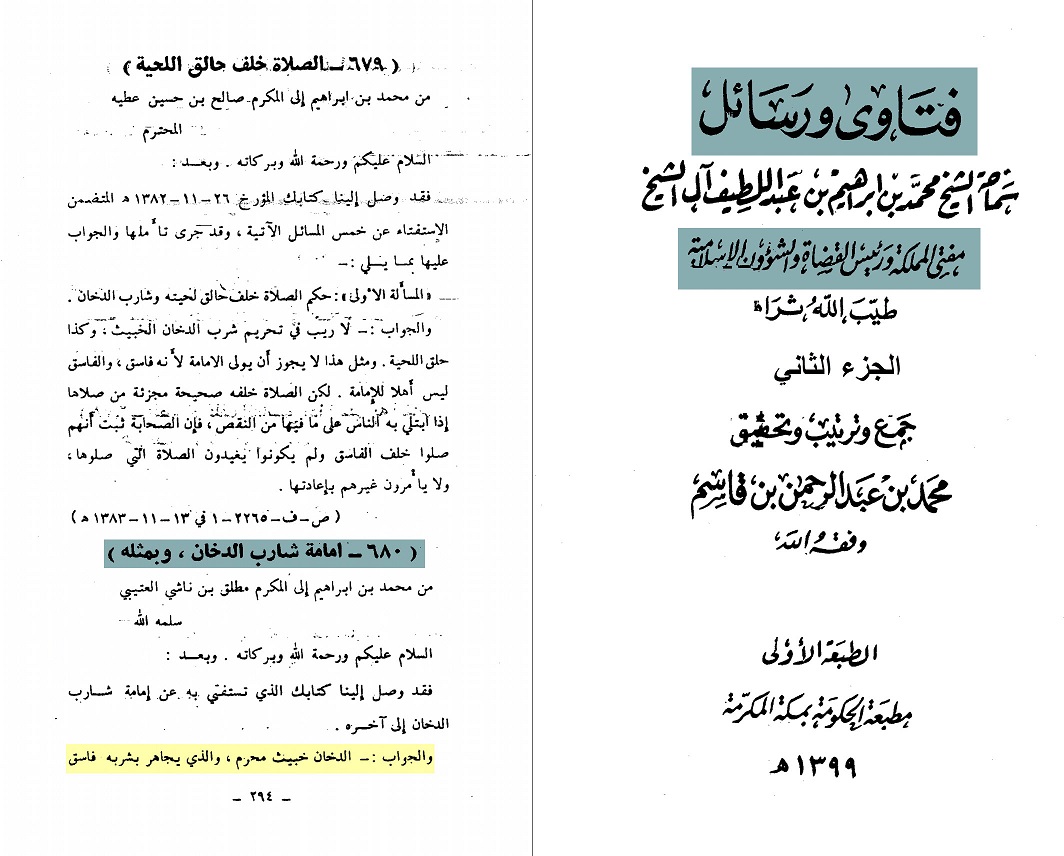 فتاوى ورسائل
سماحة الشيخ محمد بن ابراهيم بن عبد اللطيف آل الشيخ
مفتي المملكة ورئيس القضاة والشؤون الإسلامية
طيب الله ثراه
الجزء الثاني
جمع وترتيب وتحقيق
محمد بن عبد الرحمن بن قاسم
وفقه الله
الطبعة الأولى
مطبعة الحكومة بمكة المكرمة
١٣٩٩ هـ
( ٦٧٩ – الصلاة خلف حالق اللحية )
من محمد بن ابراهيم إلى المكرم صالح بن حسين عطيه
المحترم
السلام عليكم ورحمة الله وبركاته . وبعـد :
فقد وصل إلينا كتابك المؤرخ ٢٦–١١–١٣٨٢ هـ المتضمن
الإستفتاء عن خمس المسائل الآتية ، وقد جرى تأملها والجواب
عليها بمـا يـلي :–
«المسألة الأولى» : حكم الصلاة خلف حالق لحيته وشارب الدخان .
والجواب :– لا ريب في تحريم شرب الدخان الخبيث ، وكذا
حلق اللحية . ومثل هذا لا يجوز أن يولى الامامة لأنه فاسق ، والفاسق
ليس أهلا للإمامة . لكن الصلاة خلفه صحيحة مجزئة من صلاها
إذا ابتلي به الناس على ما فيها من النقص ، فإن الصحابة ثبت أنهم
صلوا خلف الفاسق ولم يكونوا يعيدون الصلاة التي صلوها ،
ولا يأمرون غيرهم بإعادتها .
( ص–ف–٢٢٦٥–١ في ١٣–١١–١٣٨٣ هـ )
( ٦٨٠ – امامة شارب الدخان ، وبمثله )
من محمد بن ابراهيم إلى المكرم مطلق بن ناشي العتيبي
سلمه الله
السلام عليكم ورحمة الله وبركاته . وبعـد :
فقد وصل إلينا كتابك الذي تستفتي به عن إمامة شـارب
الدخان إلى آخـره .
والجواب :– الدخان خبيث محرم ، والذي يجاهر بشربه فاسق
– ٢٩٤ –